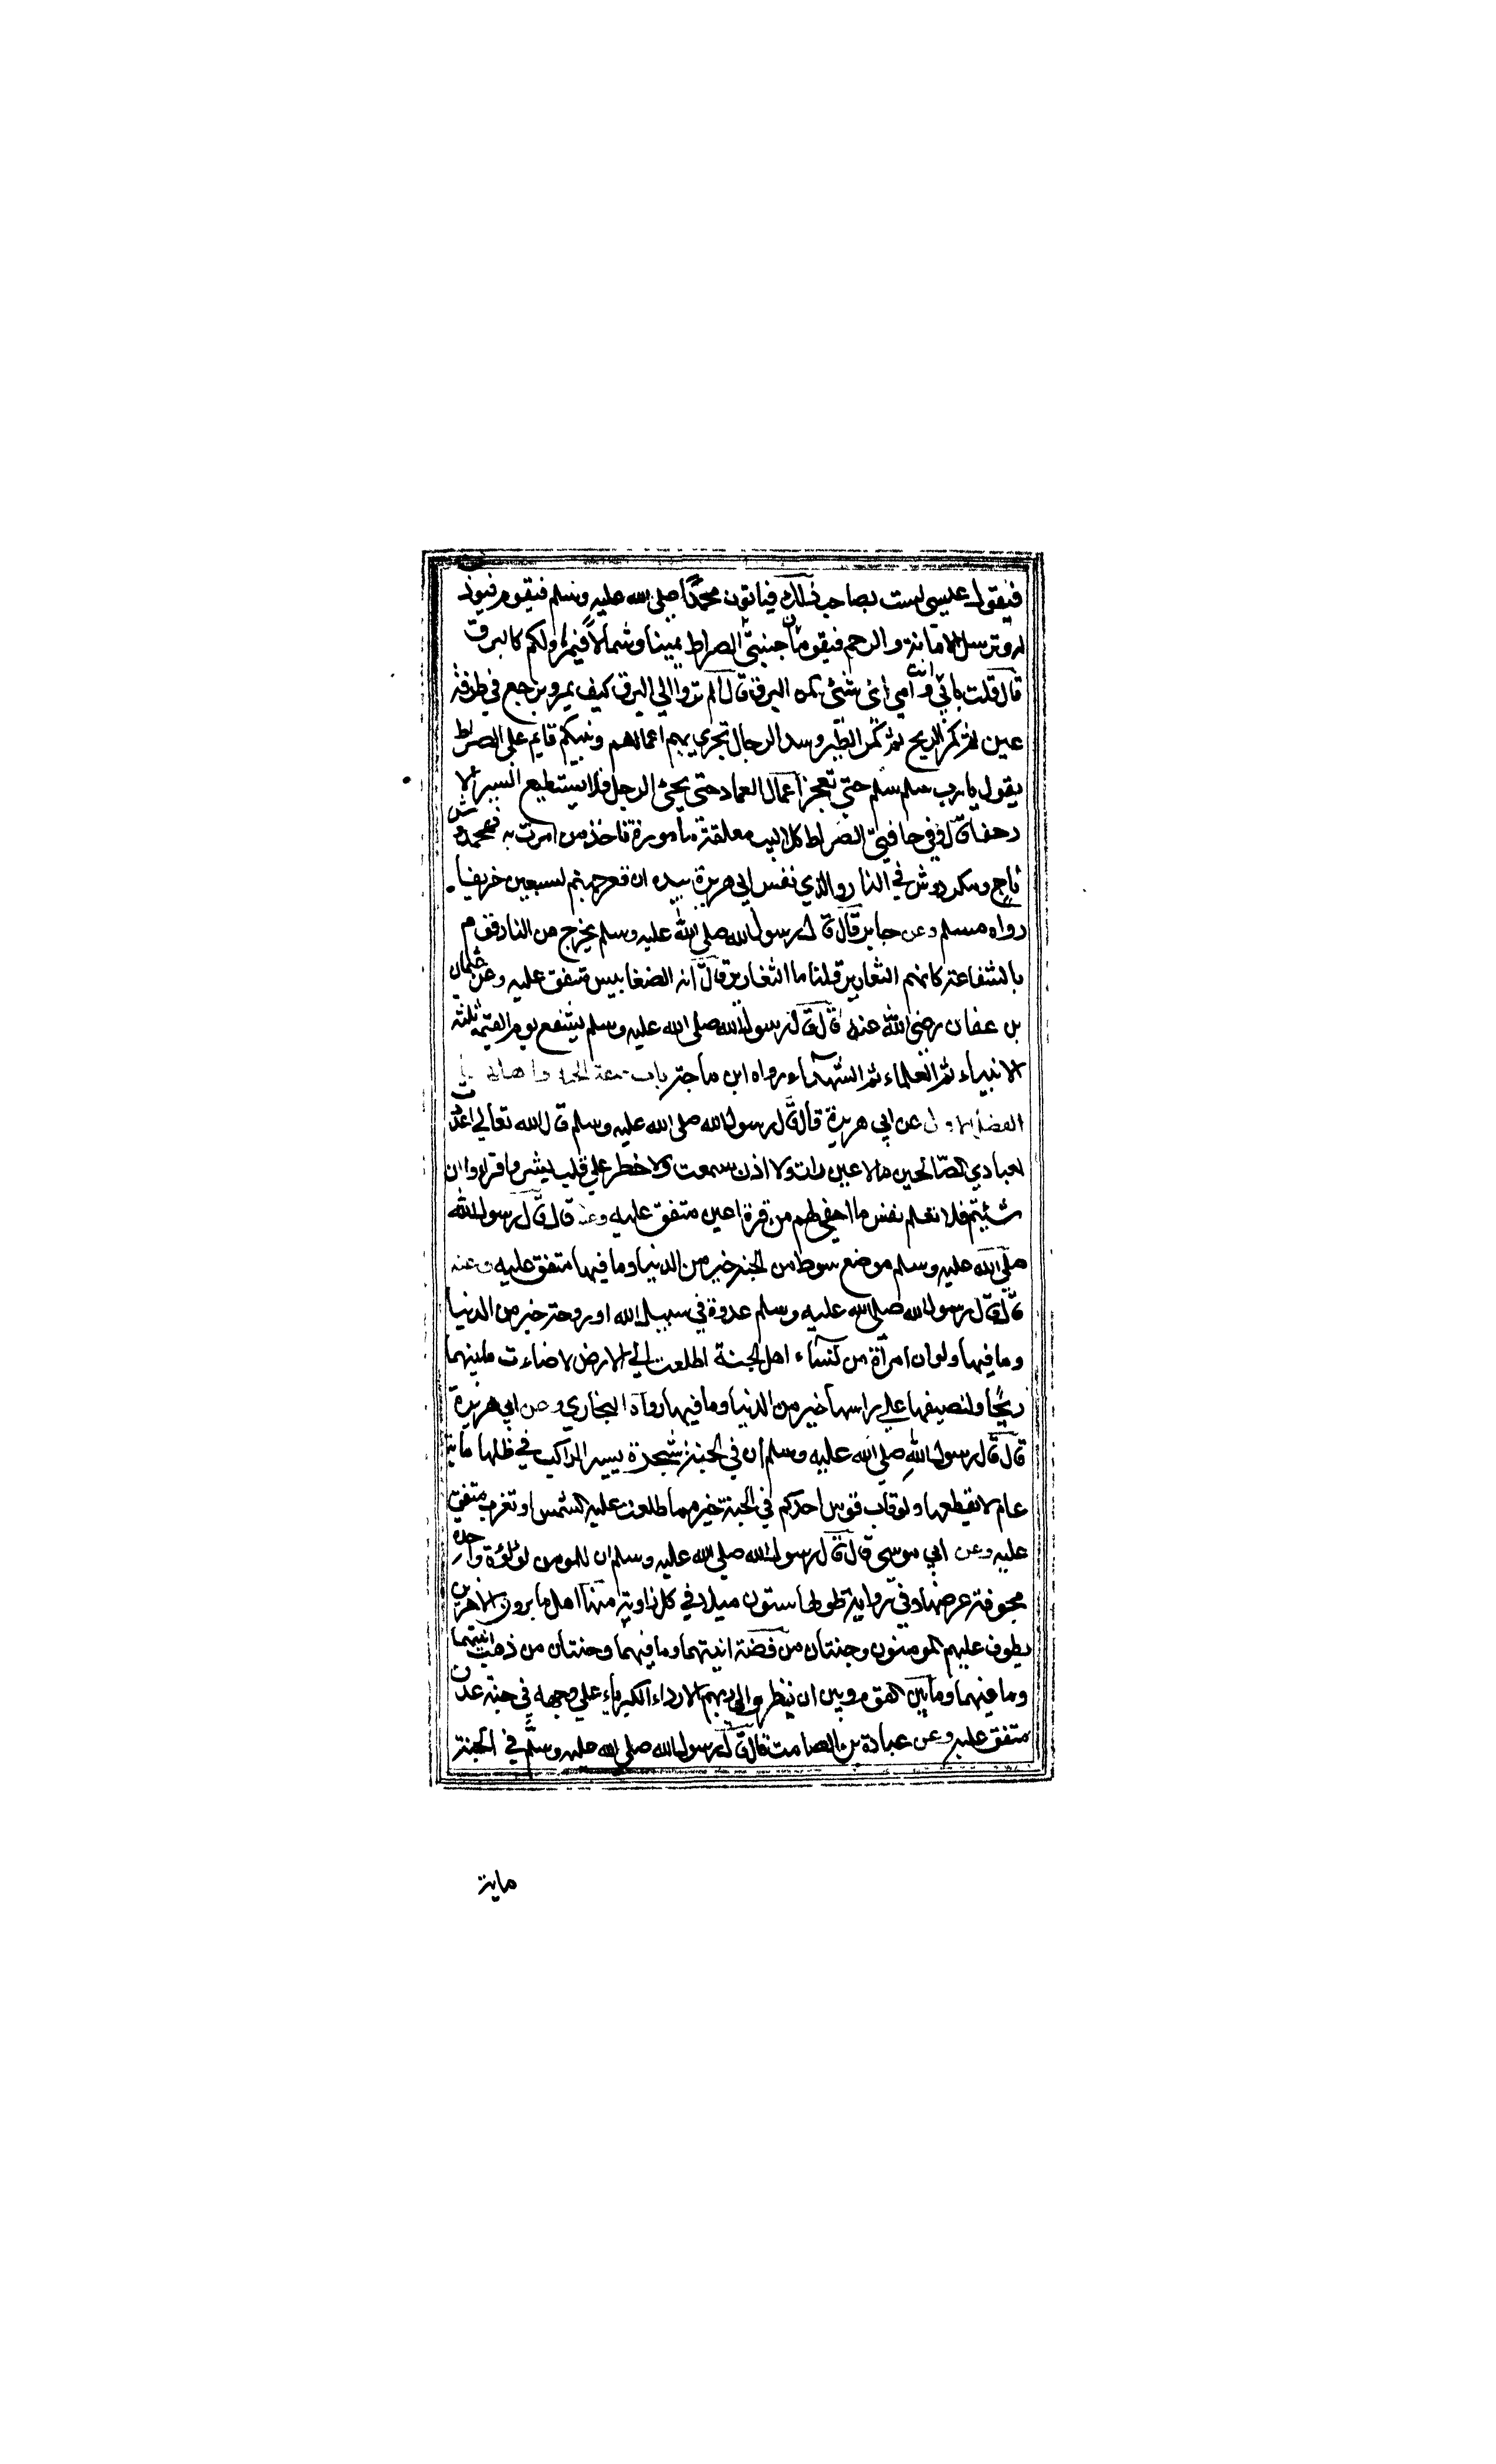 فيقول عيسى لست بصاحب ذلك فياتون محمدا صلى الله عليه وسلم فيقوم فيوذن
له وترسل الامانة والرحم فيقومان جنبتي الصراط يمينا وشمالا فيمر اولكم كالبرق
قال قلت بابي انت وامي اي شئ كمر البرق قال الم تروا الي البرق كيف يمر ويرجع في طرفة
عين ثم كمر الريح ثم كمر الطير وشد الرجال تجري بهم اعمالهم ونبيكم قايم على الصراط
يقول يا رب سلم سلم حتي تعجز اعمال العباد حتى يجئ الرجل فلا يستطيع السير الا
زحفا قال وفي حافتي الصراط كلاليب معلقة مامورة تاخذ من امرت به فمخدوش
ناج ومكردوش في النار والذي نفس ابي هريرة بيده ان قعر جهنم لسبعين خريفا
رواه مسلم وعن جابر قال قال رسول الله صلي الله عليه وسلم يخرج من النار قوم
بالشفاعة كانهم الثعارير قلنا ما الثعارير قال انه الضغابيس متفق عليه وعن عثمان
بن عفان رضي الله عنه قال قال رسول الله صلى الله عليه وسلم يشفع يوم القيمة ثلثة
الانبياء ثم العلماء ثم الشهداء رواه ابن ماجة باب صفة الجنة واهلها
الفصل الاول عن ابي هريرة قال قال رسول الله صلى الله عليه وسلم قال الله تعالي اعددت
لعبادي الصالحين ما لا عين رات ولا اذن سمعت ولا خطر علي قلب بشر واقراوا ان
شئتم فلا تعلم نفس ما اخفي لهم من قرة اعين متفق عليه وعنه قال قال رسول الله
صلي الله عليه وسلم موضع سوط من الجنة خير من الدنيا وما فيها متفق عليه وعنه
قال قال رسول الله صلى الله عليه وسلم غدوة في سبيل الله او روحة خير من الدنيا
وما فيها ولو ان امراة من نساء اهل الجنة اطلعت الي الارض لاضاءت ما بينهما
ريحا ولنصيفها علي راسها خير من الدنيا وما فيها رواه البخاري وعن ابي هريرة
قال قال رسول الله صلي الله عليه وسلم ان في الجنة شجرة يسير الراكب في ظلها ماية
عام لا يقطعها ولقاب قوس احدكم في الجنة خير مما طلعت عليه الشمس او تغرب متفق
عليه وعن ابي موسى قال قال رسول الله صلى الله عليه وسلم ان للمومن لؤلؤة واحدة
مجوفة عرضها وفي رواية طولها ستون ميلا في كل زاوية منها اهل ما يرون الاخرين
يطوف عليهم المومنون وجنتان من فضة انيتهما وما فيهما وجنتان من ذهب انيتهما
وما فيهما وما بين القوم وبين ان ينظروا الي ربهم الا رداء الكبرياء علي وجهه في جنة عدن
متفق عليه وعن عبادة بن الصامت قال قال رسول الله صلى الله عليه وسلم في الجنة
ماية